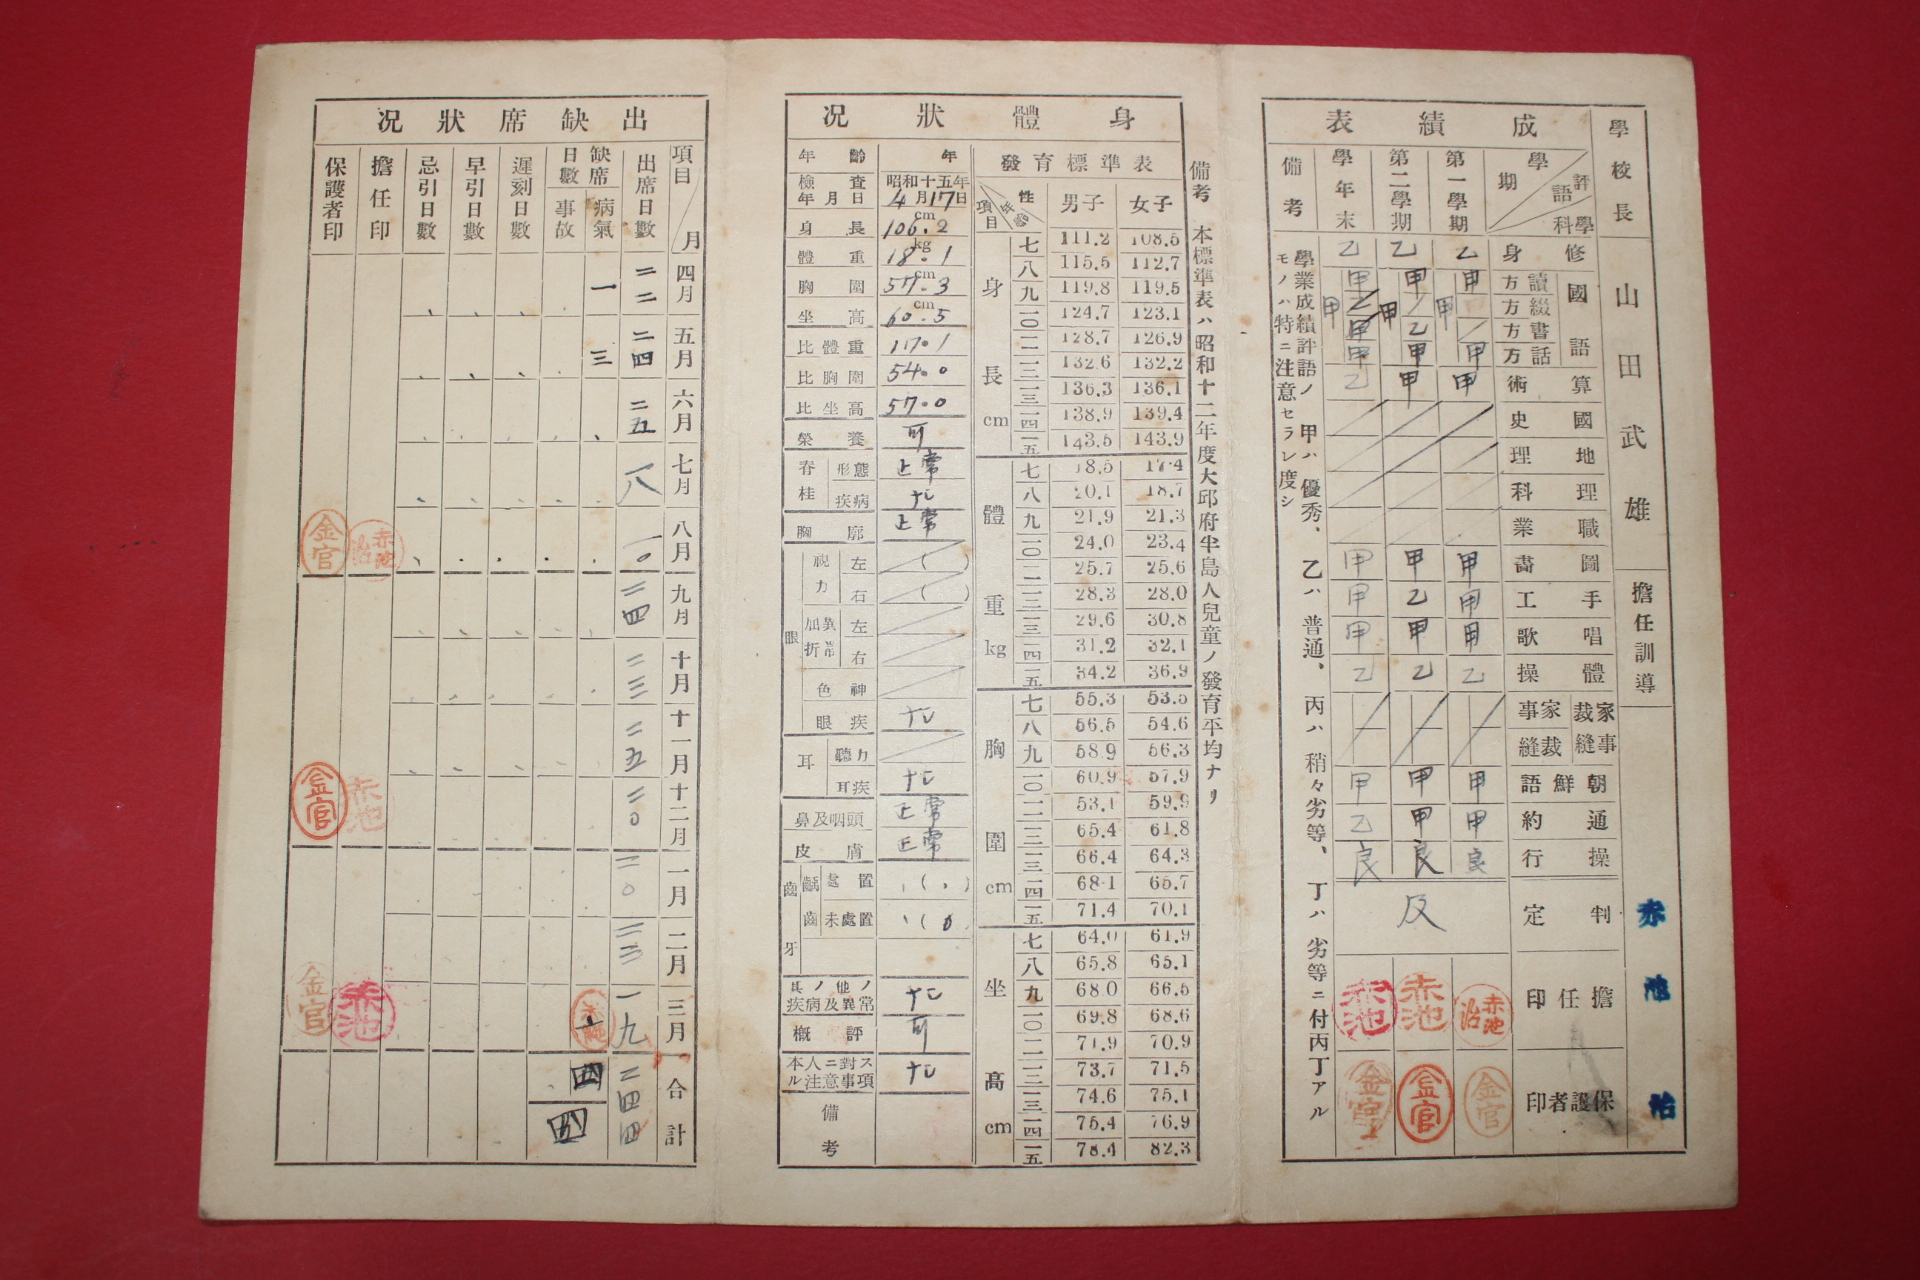 成績表
學校長 山田武雄
擔任訓導 赤池治
學期 評語 學科
第一學期
第二學期
學年末
備考
修身 乙 乙 乙
國語
讀方 甲 甲 甲
綴方
書方 乙 甲
話方 甲 甲 甲
算術 甲 甲 乙
國史
地理
理科
職業
圖畵 甲 甲 甲
手工 甲 乙 甲
唱歌 甲 甲 甲
體操 乙 乙 乙
家事裁縫
家事
裁縫
朝鮮語 甲 甲 甲
通約 甲 甲 乙
操行 良 良 良
判定 及
擔任印 赤池治 赤池 赤池
保護者印 金官 金官 金官
學業成績評語ノ 甲ハ 優秀、 乙ハ 普通、 丙ハ 稍々劣等、 丁ハ 劣等ニ付丙丁アル
モノハ特ニ注意セラレ度シ
身體狀況
備考 本標準表ハ昭和十二年度大邱府半島人兒童ノ發育平均ナリ
發育標準表
性 年齡 項目
男子 女子
身長 cm
七 111.2 108.5
八 115.5 112.7
九 119.8 119.5
一〇 124.7 123.1
一一 128.7 126.9
一二 132.6 132.2
一三 136.3 136.1
一四 138.9 139.4
一五 143.5 143.9
體重 kg
七 18.5 17.4
八 20.1 18.7
九 21.9 21.3
一〇 24.0 23.4
一一 25.7 25.6
一二 28.3 28.0
一三 29.6 30.8
一四 31.2 32.1
一五 34.2 36.9
胸圍 cm
七 55.3 53.5
八 56.5 54.6
九 58.9 56.3
一〇 60.9 57.9
一一 53.1 59.9
一二 65.4 61.8
一三 66.4 64.3
一四 68.1 65.7
一五 71.4 70.1
坐高 cm
七 64.0 61.9
八 65.8 65.1
九 68.0 66.5
一〇 69.8 68.6
一一 71.9 70.9
一二 73.7 71.5
一三 74.6 75.1
一四 75.4 76.9
一五 78.4 82.3
年齡 年
檢查年月日 昭和十五年4月17日
身長 106.2 cm
體重 18.1 kg
胸圍 57.3 cm
坐高 60.5 cm
比體重 17.1
比胸圍 54.0
比坐高 57.0
榮養 可
脊柱
形態 正常
疾病 ナシ
胸廓 正常
眼
視力
左 ( )
右 ( )
屈折異常
左
右
色神
眼疾 ナシ
耳
聽力
耳疾 ナシ
鼻及咽頭 正常
皮膚 正常
齒牙
齲齒
處置
未處置
其ノ他ノ疾病及異常 ナシ
槪評 可
本人ニ對スル注意事項 ナシ
備考
出缺席狀況
項目 月
出席日數
缺席日數
病氣
事故
遲刻日數
早引日數
忌引日數
擔任印
保護者印
四月 二二 一
五月 二四 三
六月 二五
七月 一八
八月 一〇 赤池治 金官
九月 二四
十月 二三
十一月 二五
十二月 二〇 赤池 金官
一月 二〇
二月 二三
三月 一九 赤池 金官
合計 二四四 四 四